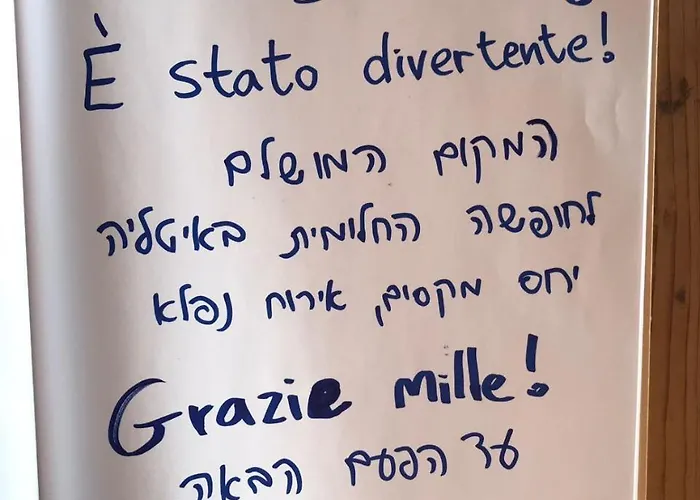 È stato divertente!
המקום המושלם
לחופשה החלומית באיטליה
יחס מקסים, אירוח נפלא
Grazie mille!
עד הפעם הבאה